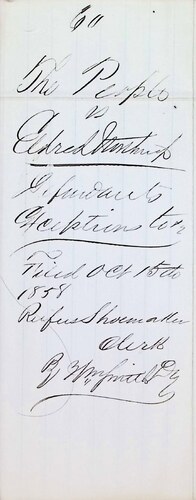 60
The People
vs
Eldred Northrup
Defendants
Exceptions to &c
Filed Oct 15th
1858
Rufus Shoemaker
Clerk
By Wm Smith Dy